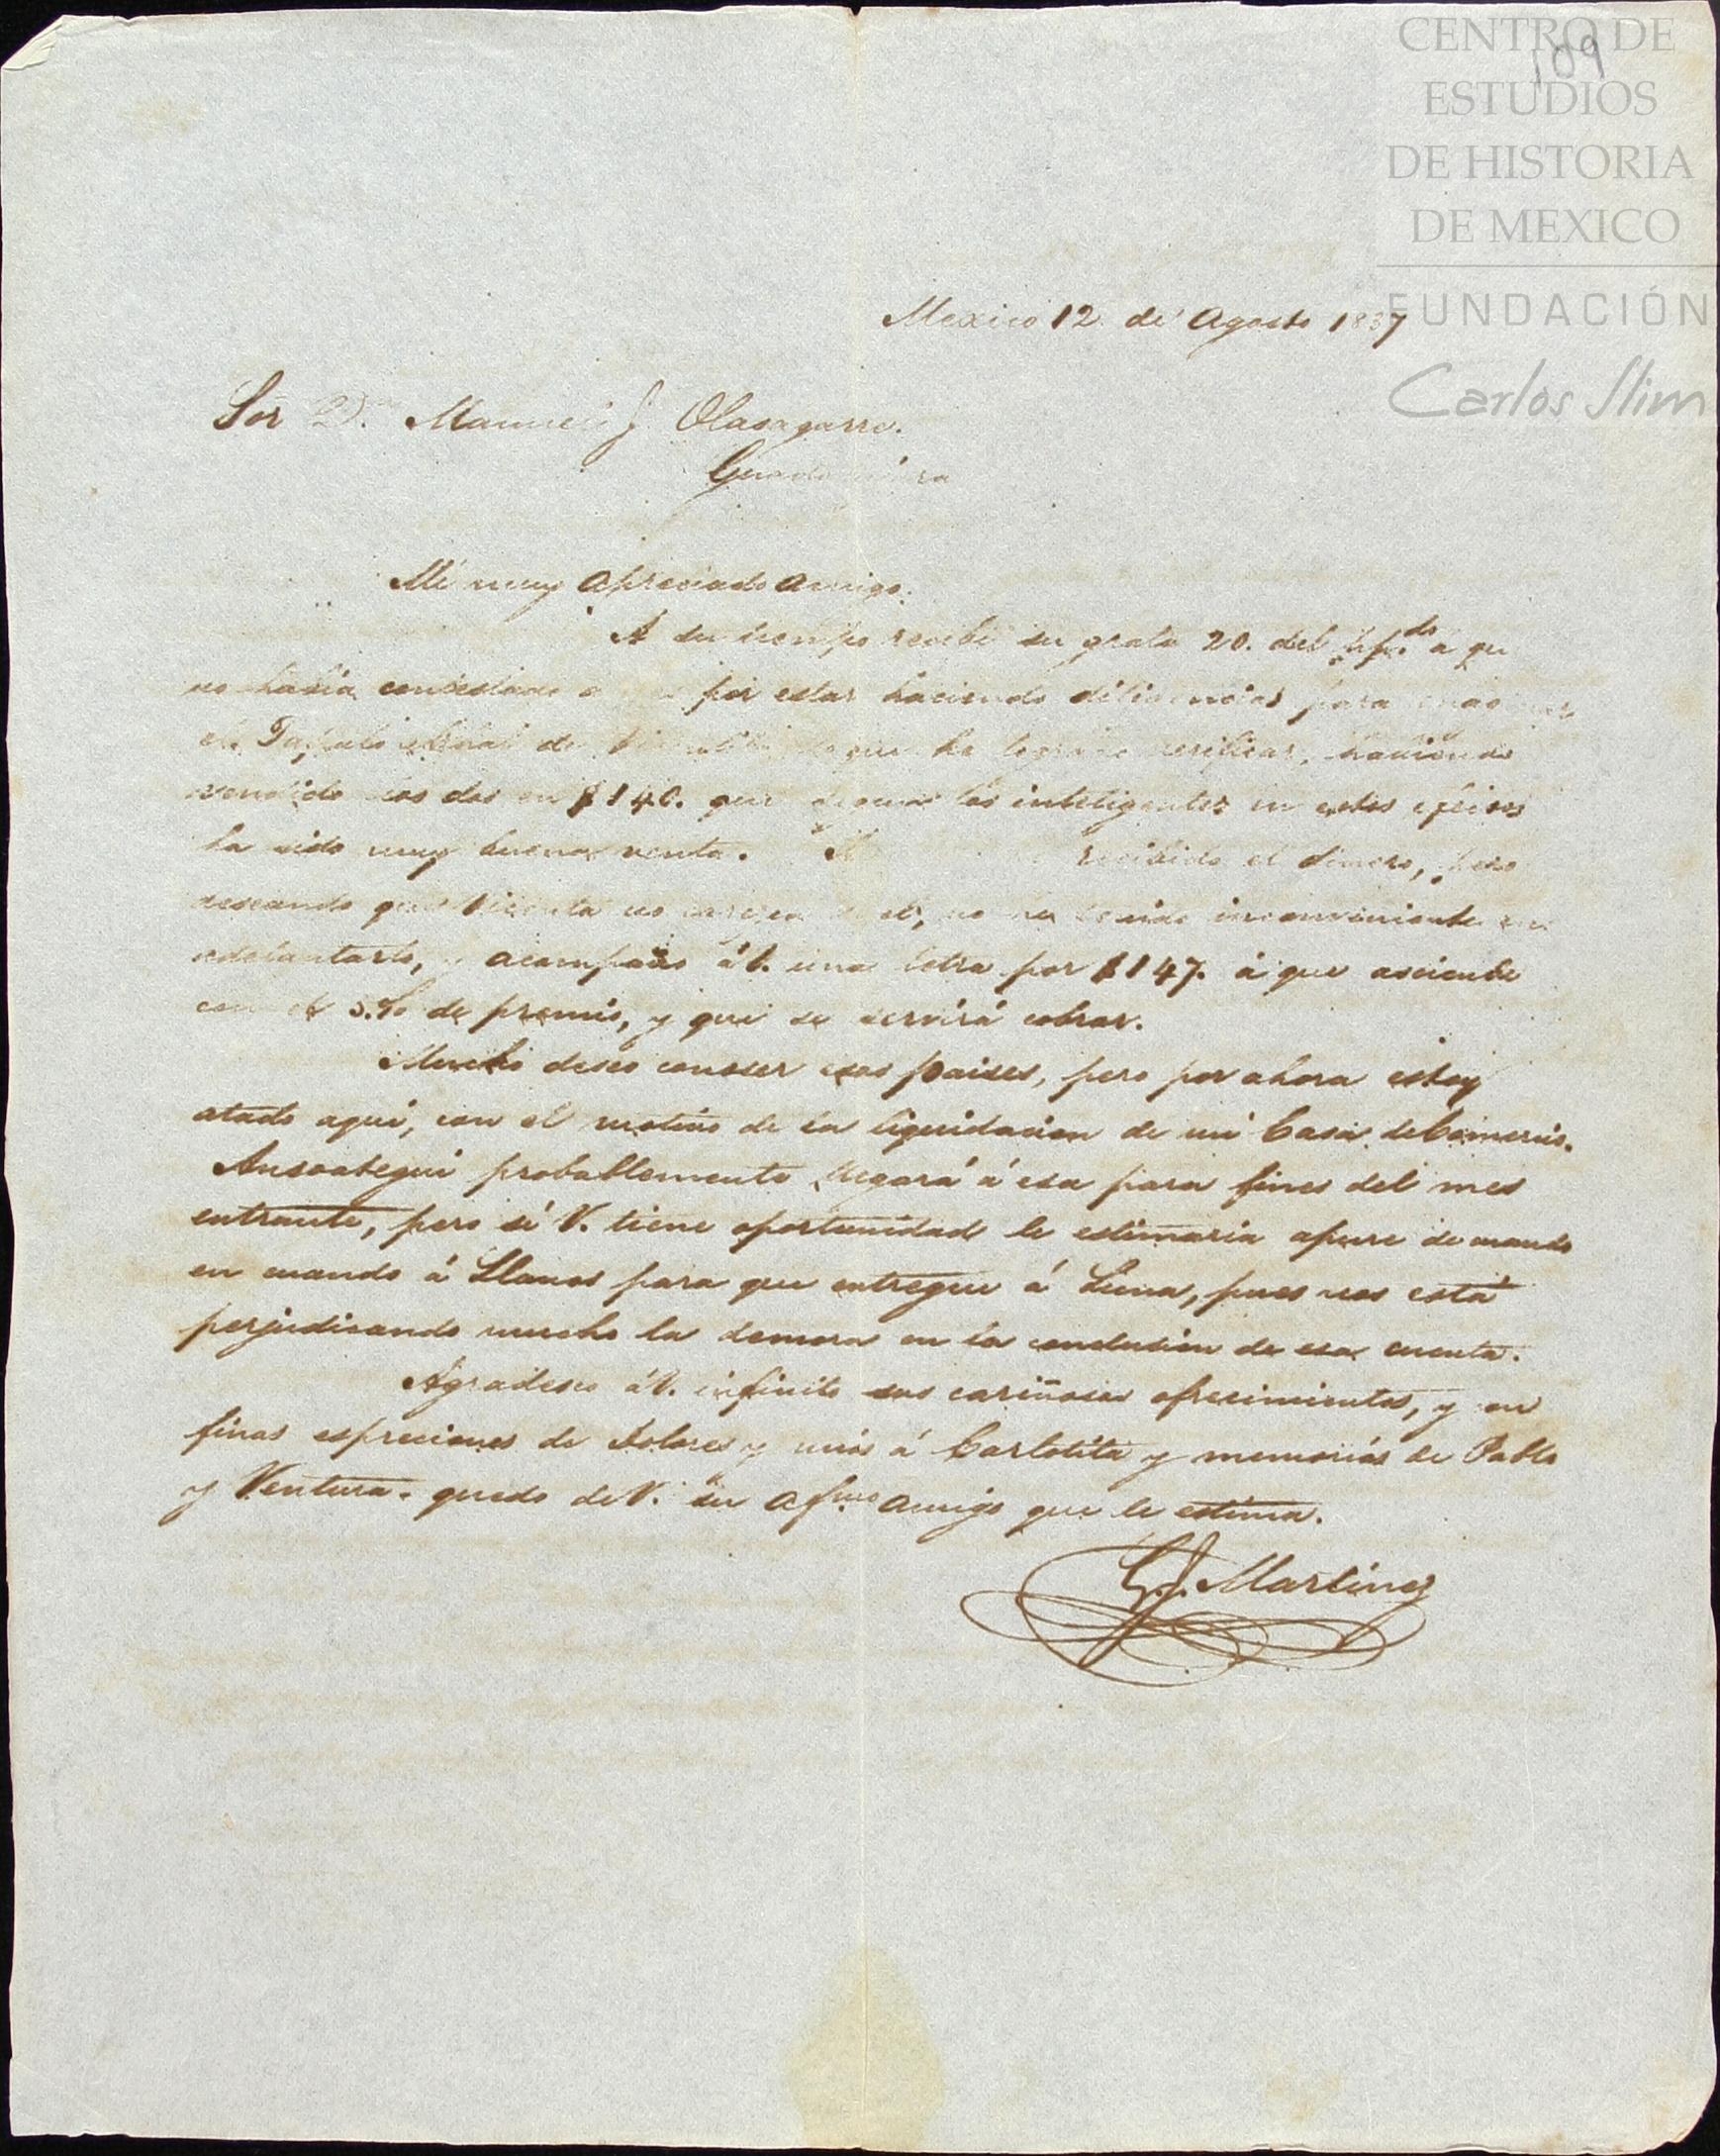 CENTRO DE
109
ESTUDIOS
DE HISTORIA
DE MEXICO
FUNDACIÓN
Carlos Slim
Mexico 12. de Agosto 1837
Sor Dn. Manuel J. Olasagarre.
Mi muy apreciado amigo.
A su tiempo recibi su grata 20. del pp.do a qu
no habia contestado por estar haciendo diligencias para
de que he logrado verificar, habiendo
vendido los dos en $140. que segun los inteligentes en estos efectos
ha sido muy buena venta. recibido el dinero, pero
deseando que no he tenido inconveniente en
adelantarlo, y acompaño á V. una letra por $147. á que asciende
con el 5.% de premio, y que se servirá cobrar.
Mucho deseo conocer esos paises, pero por ahora estoy
atado aqui, con el motivo de la liquidacion de mi Casa de Comercio.
Ansoategui probablemente llegará á esa para fines del mes
entrante, pero si V. tiene oportunidad le estimaria apure de cuando
en cuando á Llanos para que entregue á Luna, pues nos está
perjudicando mucho la demora en la conclusion de esa cuenta.
Agradesco á V. infinito sus cariñosos ofrecimientos, y con
finas espreciones de Dolores y mias á Carlotita y memorias de Pablo
y Ventura. quedo de V. su afmo amigo que le estima.
G. J. Martinez